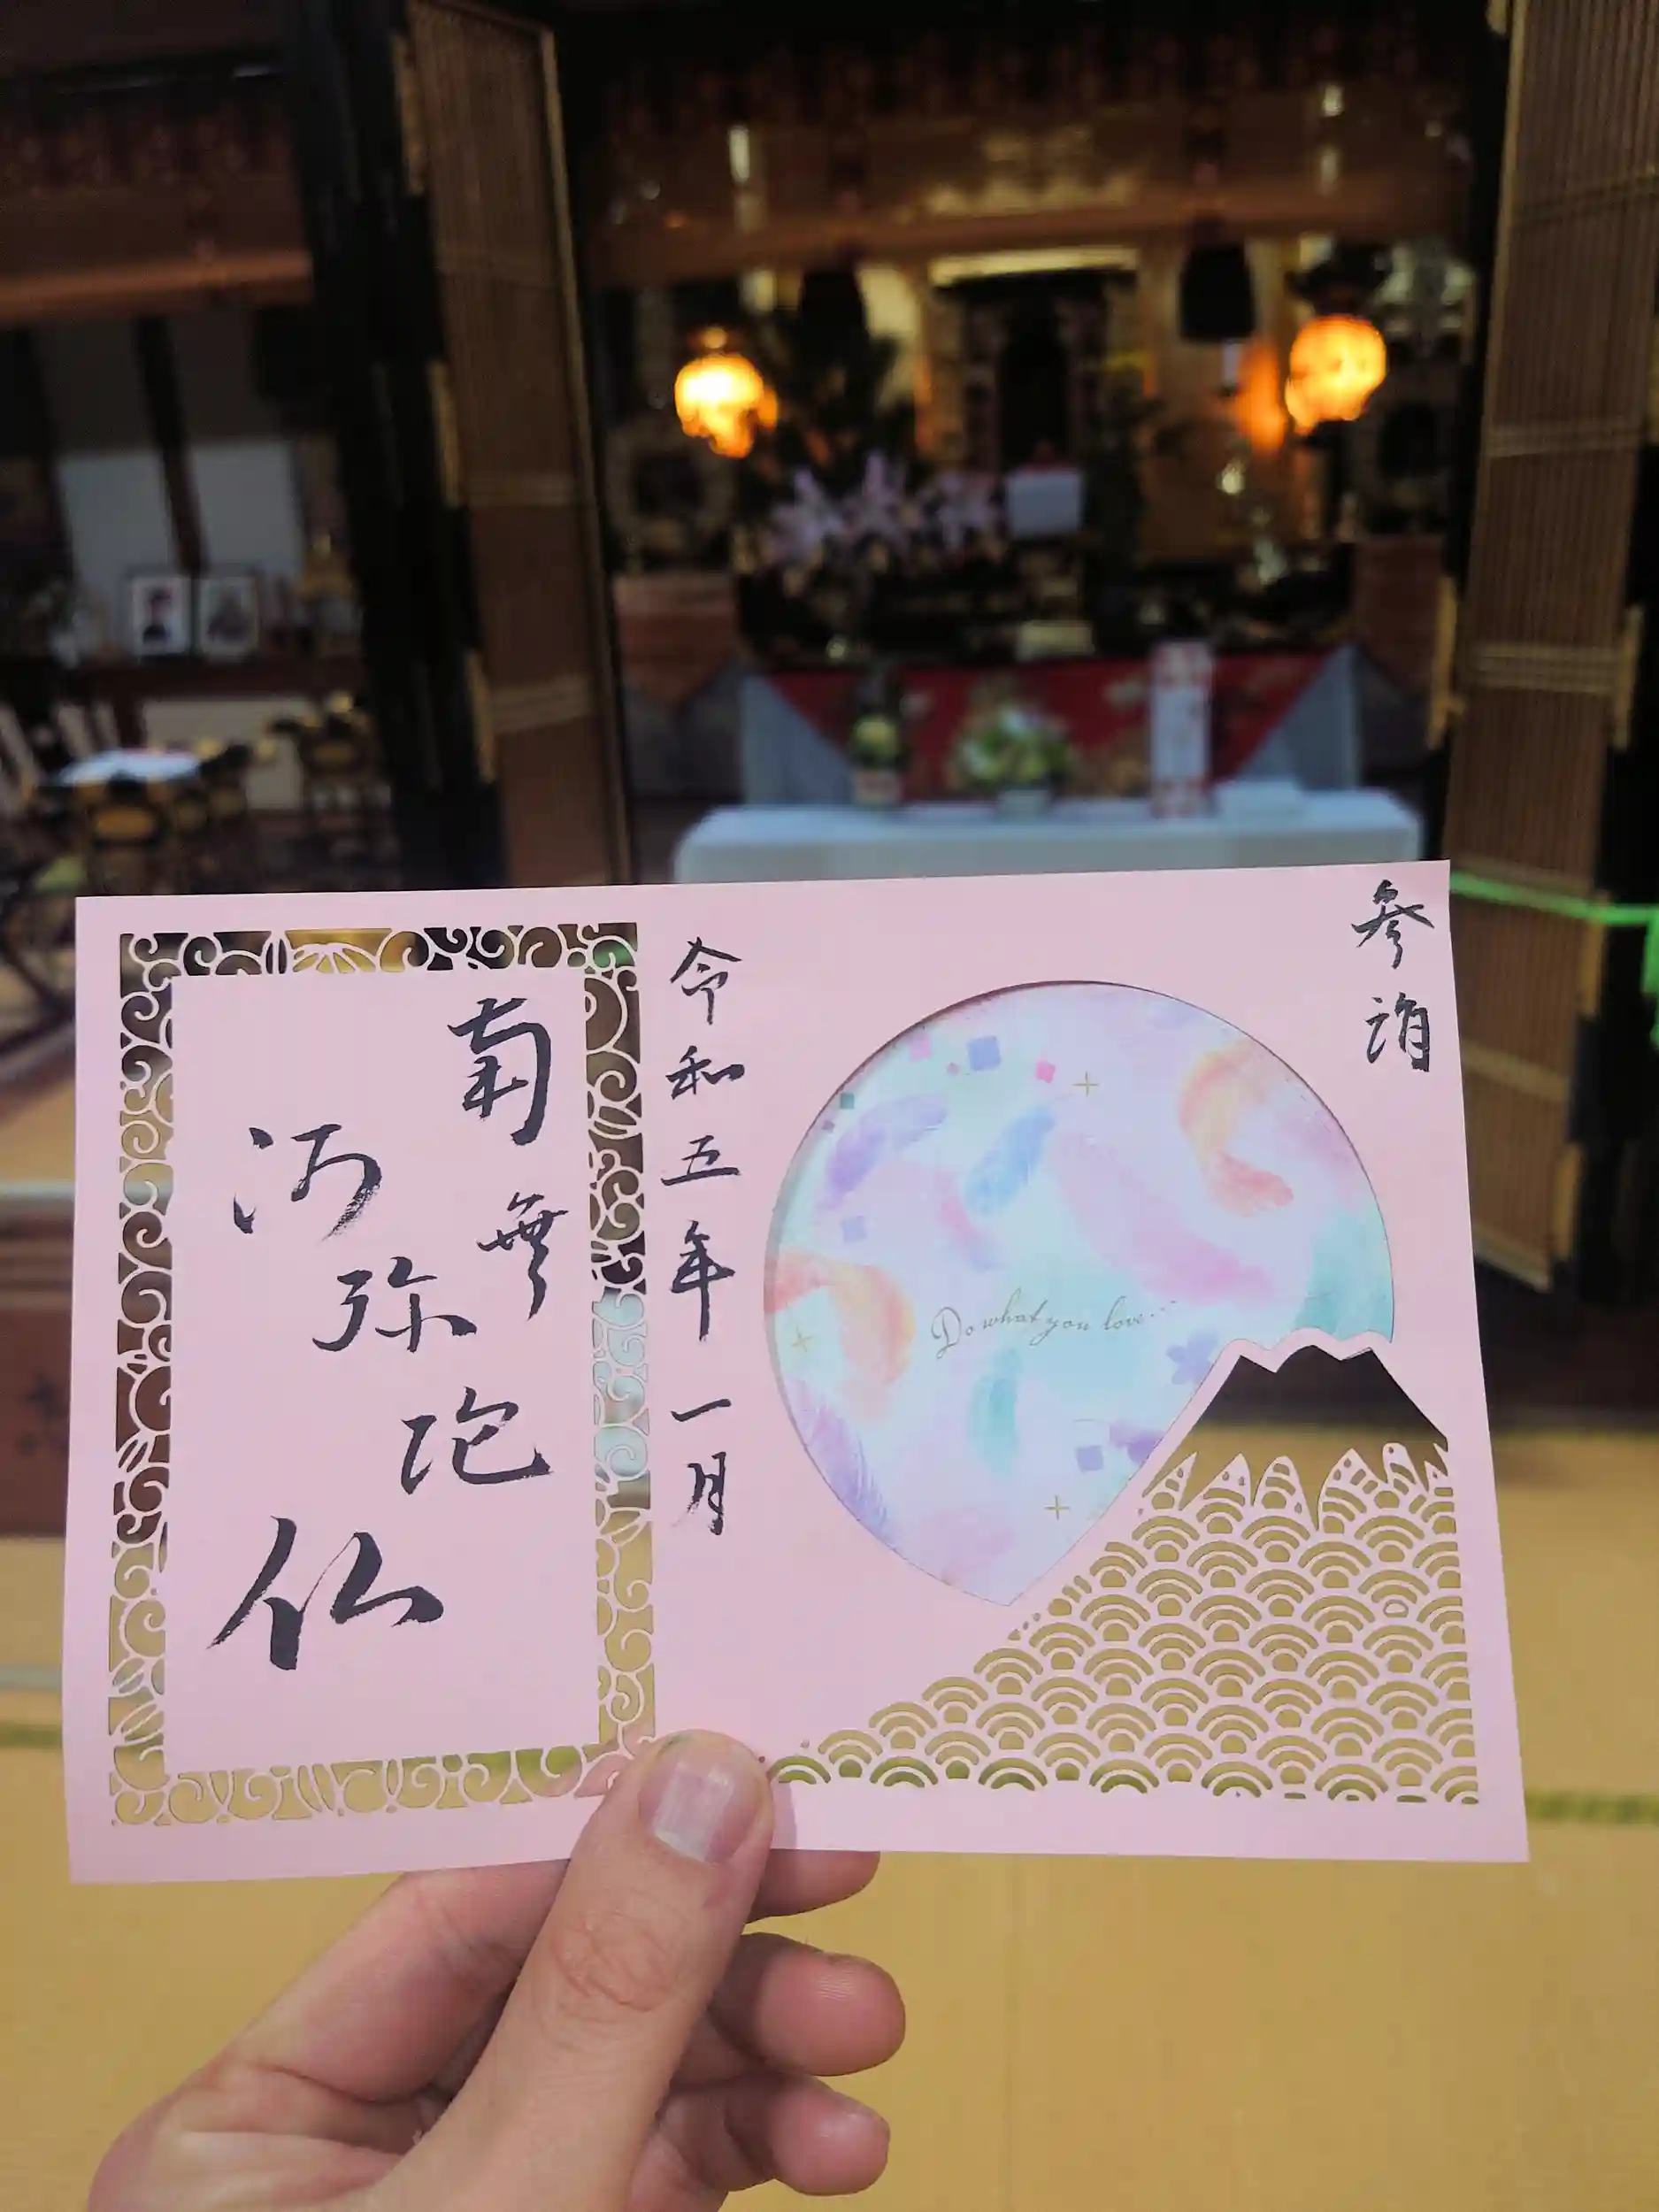 参詣
令和五年一月
南無
阿弥陀
仏
Do what you love...